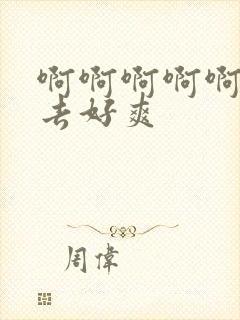 啊啊啊啊啊
去好爽
周偉